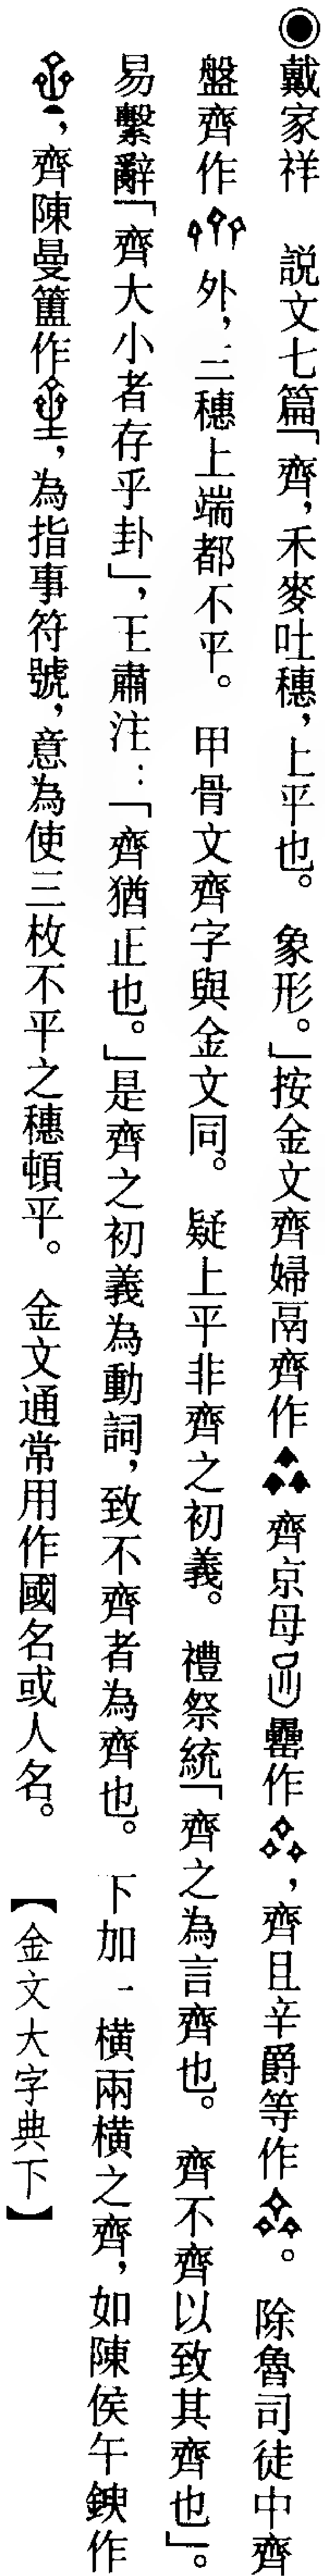 ◉戴家祥　説文七篇「齊，禾麥吐穗，上平也。象形。」按金文齊婦鬲齊作 齊京母罍作，齊且辛爵等作。除魯司徒中齊
盤齊作外，三穗上端都不平。甲骨文齊字與金文同。疑上平非齊之初義。禮祭統「齊之為言齊也。齊不齊以致其齊也」。
易繫辭「齊大小者存乎卦」，王肅注：「齊猶正也。」是齊之初義為動詞，致不齊者為齊也。下加一橫兩橫之齊，如陳侯午錪作
，齊陳曼簠作，為指事符號，意為使三枚不平之穗頓平。金文通常用作國名或人名。【金文大字典下】